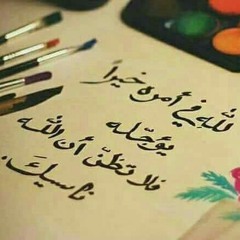 للهِ في أمره خيراً
يؤجّله
فلا تظنّ أن الله
ناسيكَ.